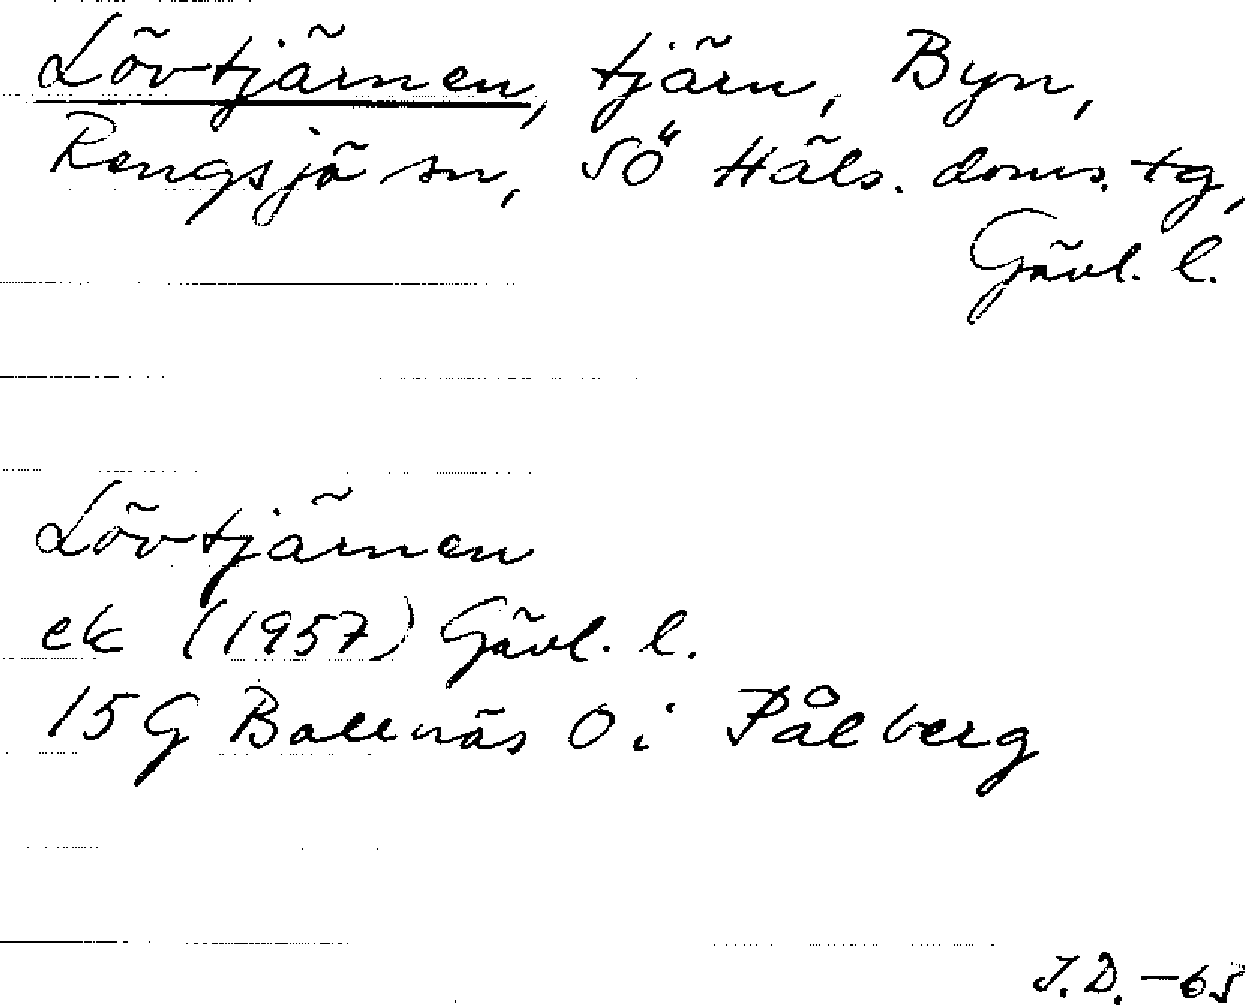 Lövtjärnen, tjärn, Byn,
Rengsjö sn, SÖ Häls. doms. tg,
Gävl. l.
Lövtjärnen
ek (1957) Gävl. l.
15 G Bollnäs O i Pålberg
J.D. -65